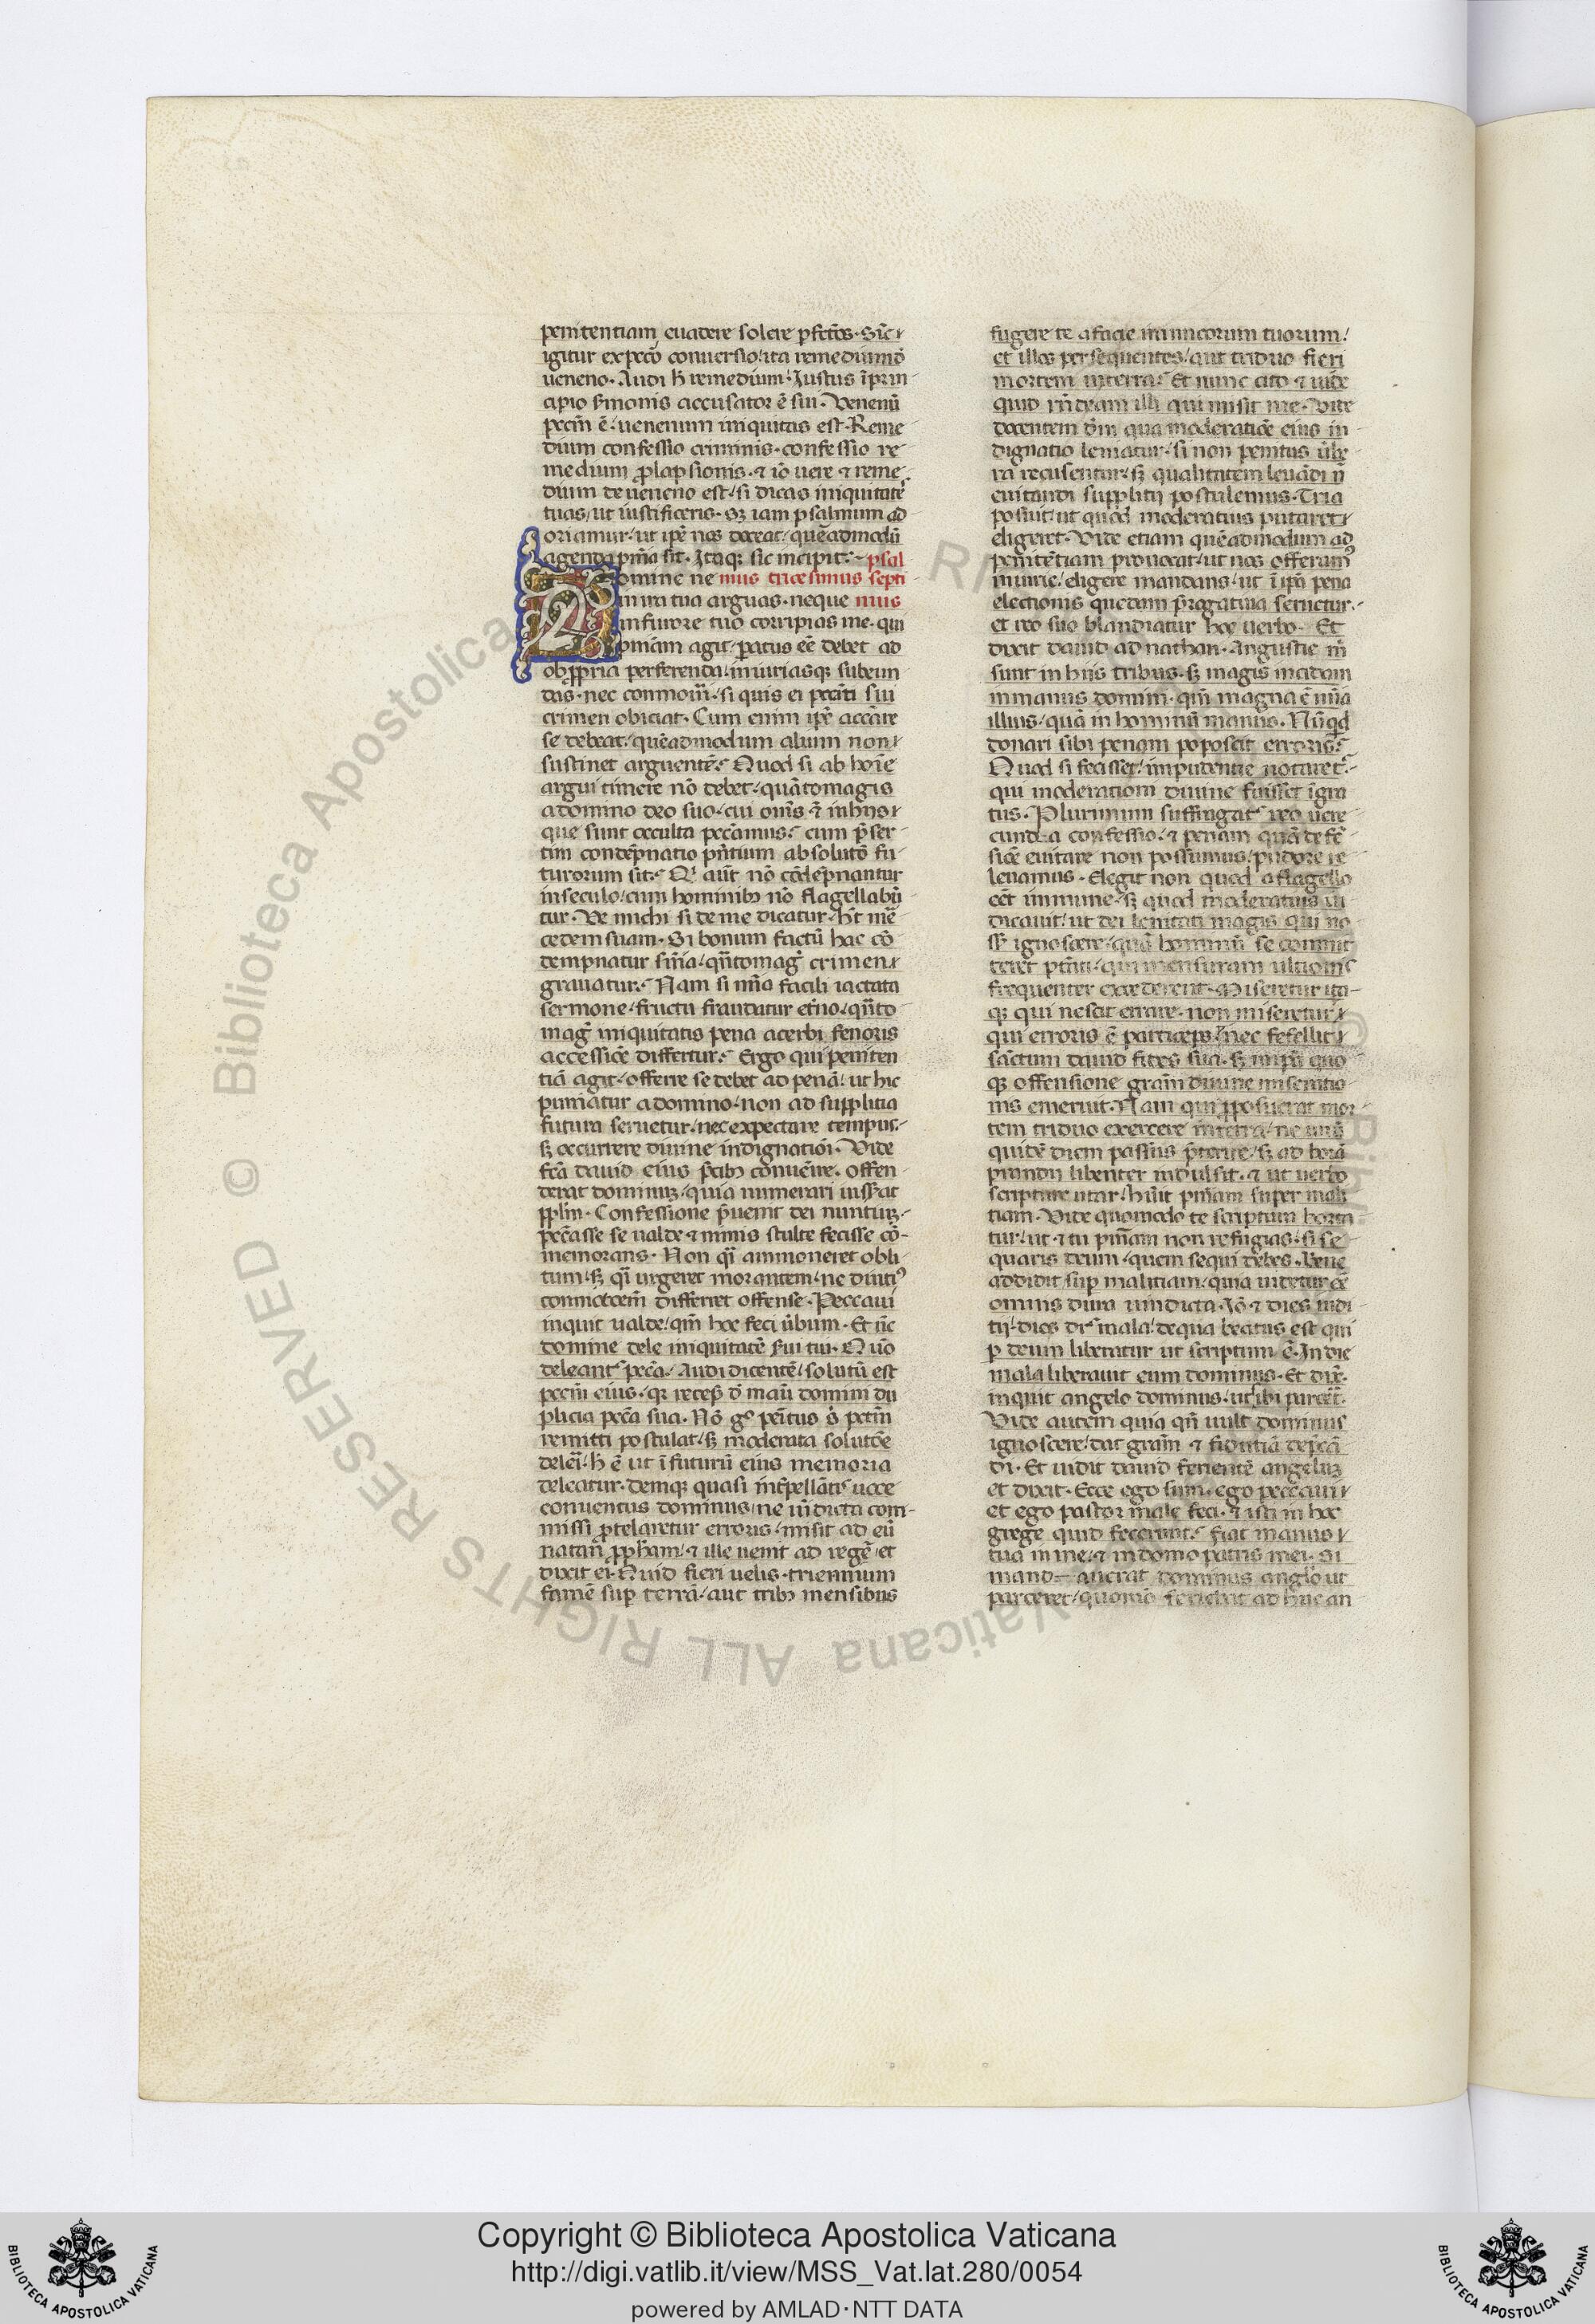 penitentiam euadere solere ꝑfectos. Sic
igitur ex peccato conuersio, ita remedium de
ueneno. Audi h̄ remedium. Iustus ī prin
cipio ẜmonis accusator ē sui. Venenū
pecm̄ ē. uenenum iniquitas est. Reme
dium confessio criminis. confessio re
medium ꝓlapsionis. ⁊ iō uere ⁊ reme
dium de ueneno est, si dicas iniquitatē
tuas, ut iustificeris. Sꝫ iam psalmum ad
oriamur, ut ip̄e nos doceat, quēadmodū
agenda pn̄ia sit. Itaqꝫ sic incipit. psal
omine ne mus tricesimus septi
in ira tua arguas. neque mus
in furore tuo corripias me. qui
pniām agit. paratus eē debet ad
obꝓpria perferenda. iniuriasqꝫ subeun
das. nec conmoūi. si quis ei peccāti sui
crimen obiciat. Cum enim ip̄e accūare
se debeat. quēadmodum alium non
sustinet arguentē. Quod si ab hoīe
argui timere nō debet. quātomagis
a domino deo suo. cui om̄s ⁊ in hijs
que sunt occulta peccamus. cum p̄ser
tim condēpnatio pn̄tium absolutō fu
turorum sit. Qͥ aūt nō cōdēpnantur
in seculo, cum hominibꝫ nō flagellabū
tur. Ve michi si de me dicatur. h̄t m̄e
cedem suam. Si bonum factū hac cō
dempnatur sn̄ia, qn̄tomagꝭ crimen
grauatur. Nam si mīa facili iactata
sermone, fructu fraudatur et̄no, qn̄to
magꝭ iniquitatis pena acerbi fenoris
accessiōe differtur. Ergo qui peniten
tiā agit, offerre se debet ad penā. ut hic
puniatur a domino. non ad supplicia
futura seruetur. nec expectare tempus.
sꝫ occurrere diuine indignatiōi. Vide
scā dauid eius p̄cibꝫ conuēire. Offen
derat dominuꝫ, quia numerari iusserat
ppl̄m. Confessione p̄uenit dei nuntiuꝫ.
peccasse se ualde ⁊ nimis stulte fecisse cō
memorans. Non qͥ ammoneret obli
tum. sꝫ qͥ urgeret morantem. ne diutiꝰ
conmotōem̄ differret offense. Peccaui
inquit ualde. qm̄ hoc feci ūbum. Et n̄c
domine dele iniquitatē ẜui tui. Quō
deleantᷣ peccā. Audi dicentē. solutū est
pecm̄ eius. qꝛ recep̄ d̄ manū domini du
plicia peccā sua. Nō gͦ penītus s̄ petm̄
remitti postulat, sꝫ moderata solutōe
delerī. h̄ ē ut ī futurū eius memoria
deleatur. deniqꝫ quasi int̄pellātis uoce
conuentus dominus, ne uīdicta com
missi ꝓtelaretur erroris. misit ad eū
natan ꝓph̄am. ⁊ ille uenit ad regē et
dixit ei. Quid fieri uelis. triennium
famē suꝑ terrā, aut tribꝫ mensibus
fugere te a facie inimicorum tuorum
et illos persequentes, aut triduo fieri
mortem in terra. Et nunc cito ⁊ uide
quid rn̄deam illi qui misit me. Vide
docentem dn̄m qua moderatiōe eius in
dignatio leniatur. si non penitus ūbe
ra recusentur. sꝫ qualitatem leuādi n̄
euitandi supplitij postulemus. Tria
posuit, ut quod moderatius putaret
eligeret. Vide etiam quēadmodum ad
penitētiam prouocat, ut nos offeramꝰ
iniurie, eligere mandans, ut ī ip̄a pena
electionis quedam p̄rogatiua seruetur.
et reo suo blandiatur hoc uerbo. Et
dixit dauid ad nathan. Angustie m̄
sunt in hijs tribus. sꝫ magis incidam
in manus domini. qm̄ magna ē mīa
illius, quā in hominū manus. Nūqd̄
donari sibi penam poposcit erroris.
Quod si fecisset, impudentie notaretᷣ.
qui moderationi diuine fuisset īgra
tus. Plurimum suffragatᷣ reo uere
cunda confessio. ⁊ penam quā defē
siōe euitare non possumus, pudore re
leuamus. Elegit non quod a flagello
eēt immune. sꝫ quod moderatius iu
dicauit, ut dei lenitati magis qui no
sset ignoscere, quā hominū se conmit
teret ptāti, qui mensuram ultionis
frequenter excederent. Miseretur ita
qꝫ qui nescit errare. non miseretur
qui erroris ē particeps. nec fefellit
sāctum dauid fides sua. sꝫ in ip̄a quo
qꝫ offensione gram̄ diuine miseratio
nis emeruit. Nam qui ꝓposuerat mor
tem triduo exercere in terra, ne unū
quidē diem passus p̄terire, sꝫ ad horā
prandij libenter indulsit. ⁊ ut uerbo
scripture utar, hūit pn̄iam super mali
tiam. Vide quomodo te scriptum horta
tur, ut ⁊ tu pn̄iam non refugias. si se
quaris deum, quem sequi debes. Bene
addidit suꝑ malitiam, quia uidetur eē
omnis dura uindicta. Iō ⁊ dies iudi
tij, dies drᷣ mala, de qua beatus est qui
ꝑ deum liberatur ut scriptum ē. In die
mala liberauit eum dominus. Et dix̄
inquit angelo dominus, ut ibi parcēt.
Vide autem quia qn̄ uult dominus
ignoscere, dat gram̄ ⁊ fidutiā dep̄cā
di. Et uidit dauid ferientē angeluꝫ
et dixit. Ecce ego sum. ego peccaui
et ego pastor male feci. ⁊ isti in hoc
grege quid fecerunt. Fiat manus
tua in me. ⁊ in domo patris mei. Si
mandauerat dominus anglo ut
parceret, quomō feriebat adhuc an
Copyright © Biblioteca Apostolica Vaticana
http://digi.vatlib.it/view/MSS_Vat.lat.280/0054
powered by AMLAD·NTT DATA